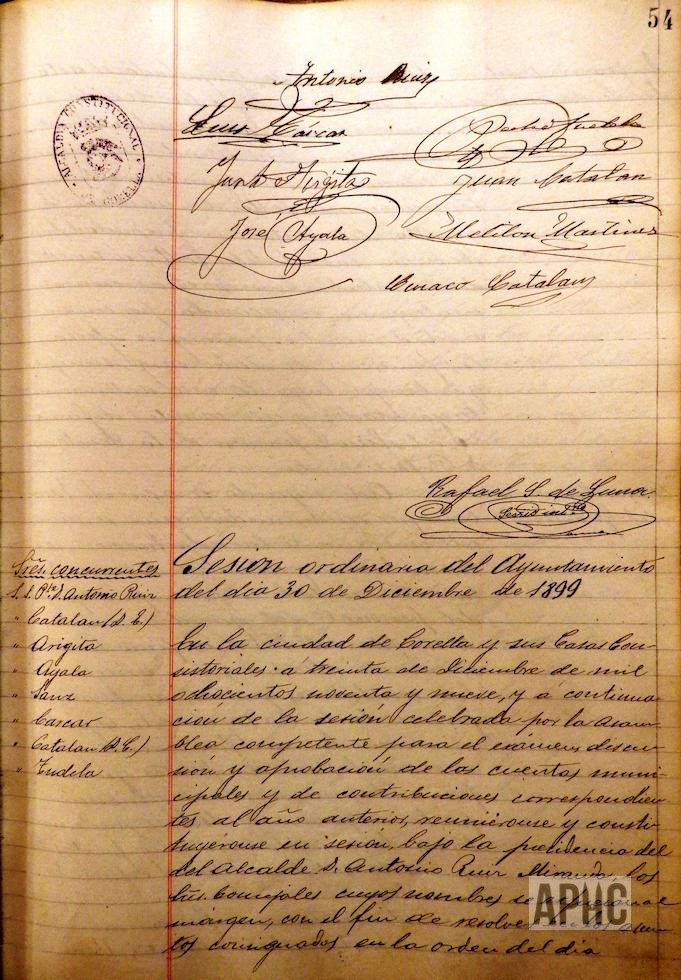 54
Antonio Ruiz
ALCALDIA CONSTITUCIONAL
DE CORELLA
Luis Cáscar
Pedro Tudela
Justo Arigita
Juan Catalan
José Ayala
Meliton Martinez
Ciriaco Catalan
Rafael S. de Luna
Secrio
Señs. concurrentes
S. S. Pte. D. Antonio Ruiz
" Catalan (D. C.)
" Arigita
" Ayala
" Sanz
" Cascar
" Catalan (D. C.)
" Tudela
Sesion ordinaria del Ayuntamiento
del dia 30 de Diciembre de 1899
En la ciudad de Corella y sus Casas Con-
sistoriales á treinta de Diciembre de mil
ochocientos noventa y nueve, y a continua-
ción de la sesión celebrada por la asam-
blea competente para el exámen, discu-
sión y aprobación de las cuentas muni-
cipales y de contribuciones correspondien-
tes al año anterior, reuniéronse y consti-
tuyéronse en sesión, bajo la presidencia del
del Alcalde D. Antonio Ruiz Miranda, los
Sres. Concejales cuyos nombres se al
márgen, con el fin de resolver los asun-
tos consignados en la orden del dia
APHC